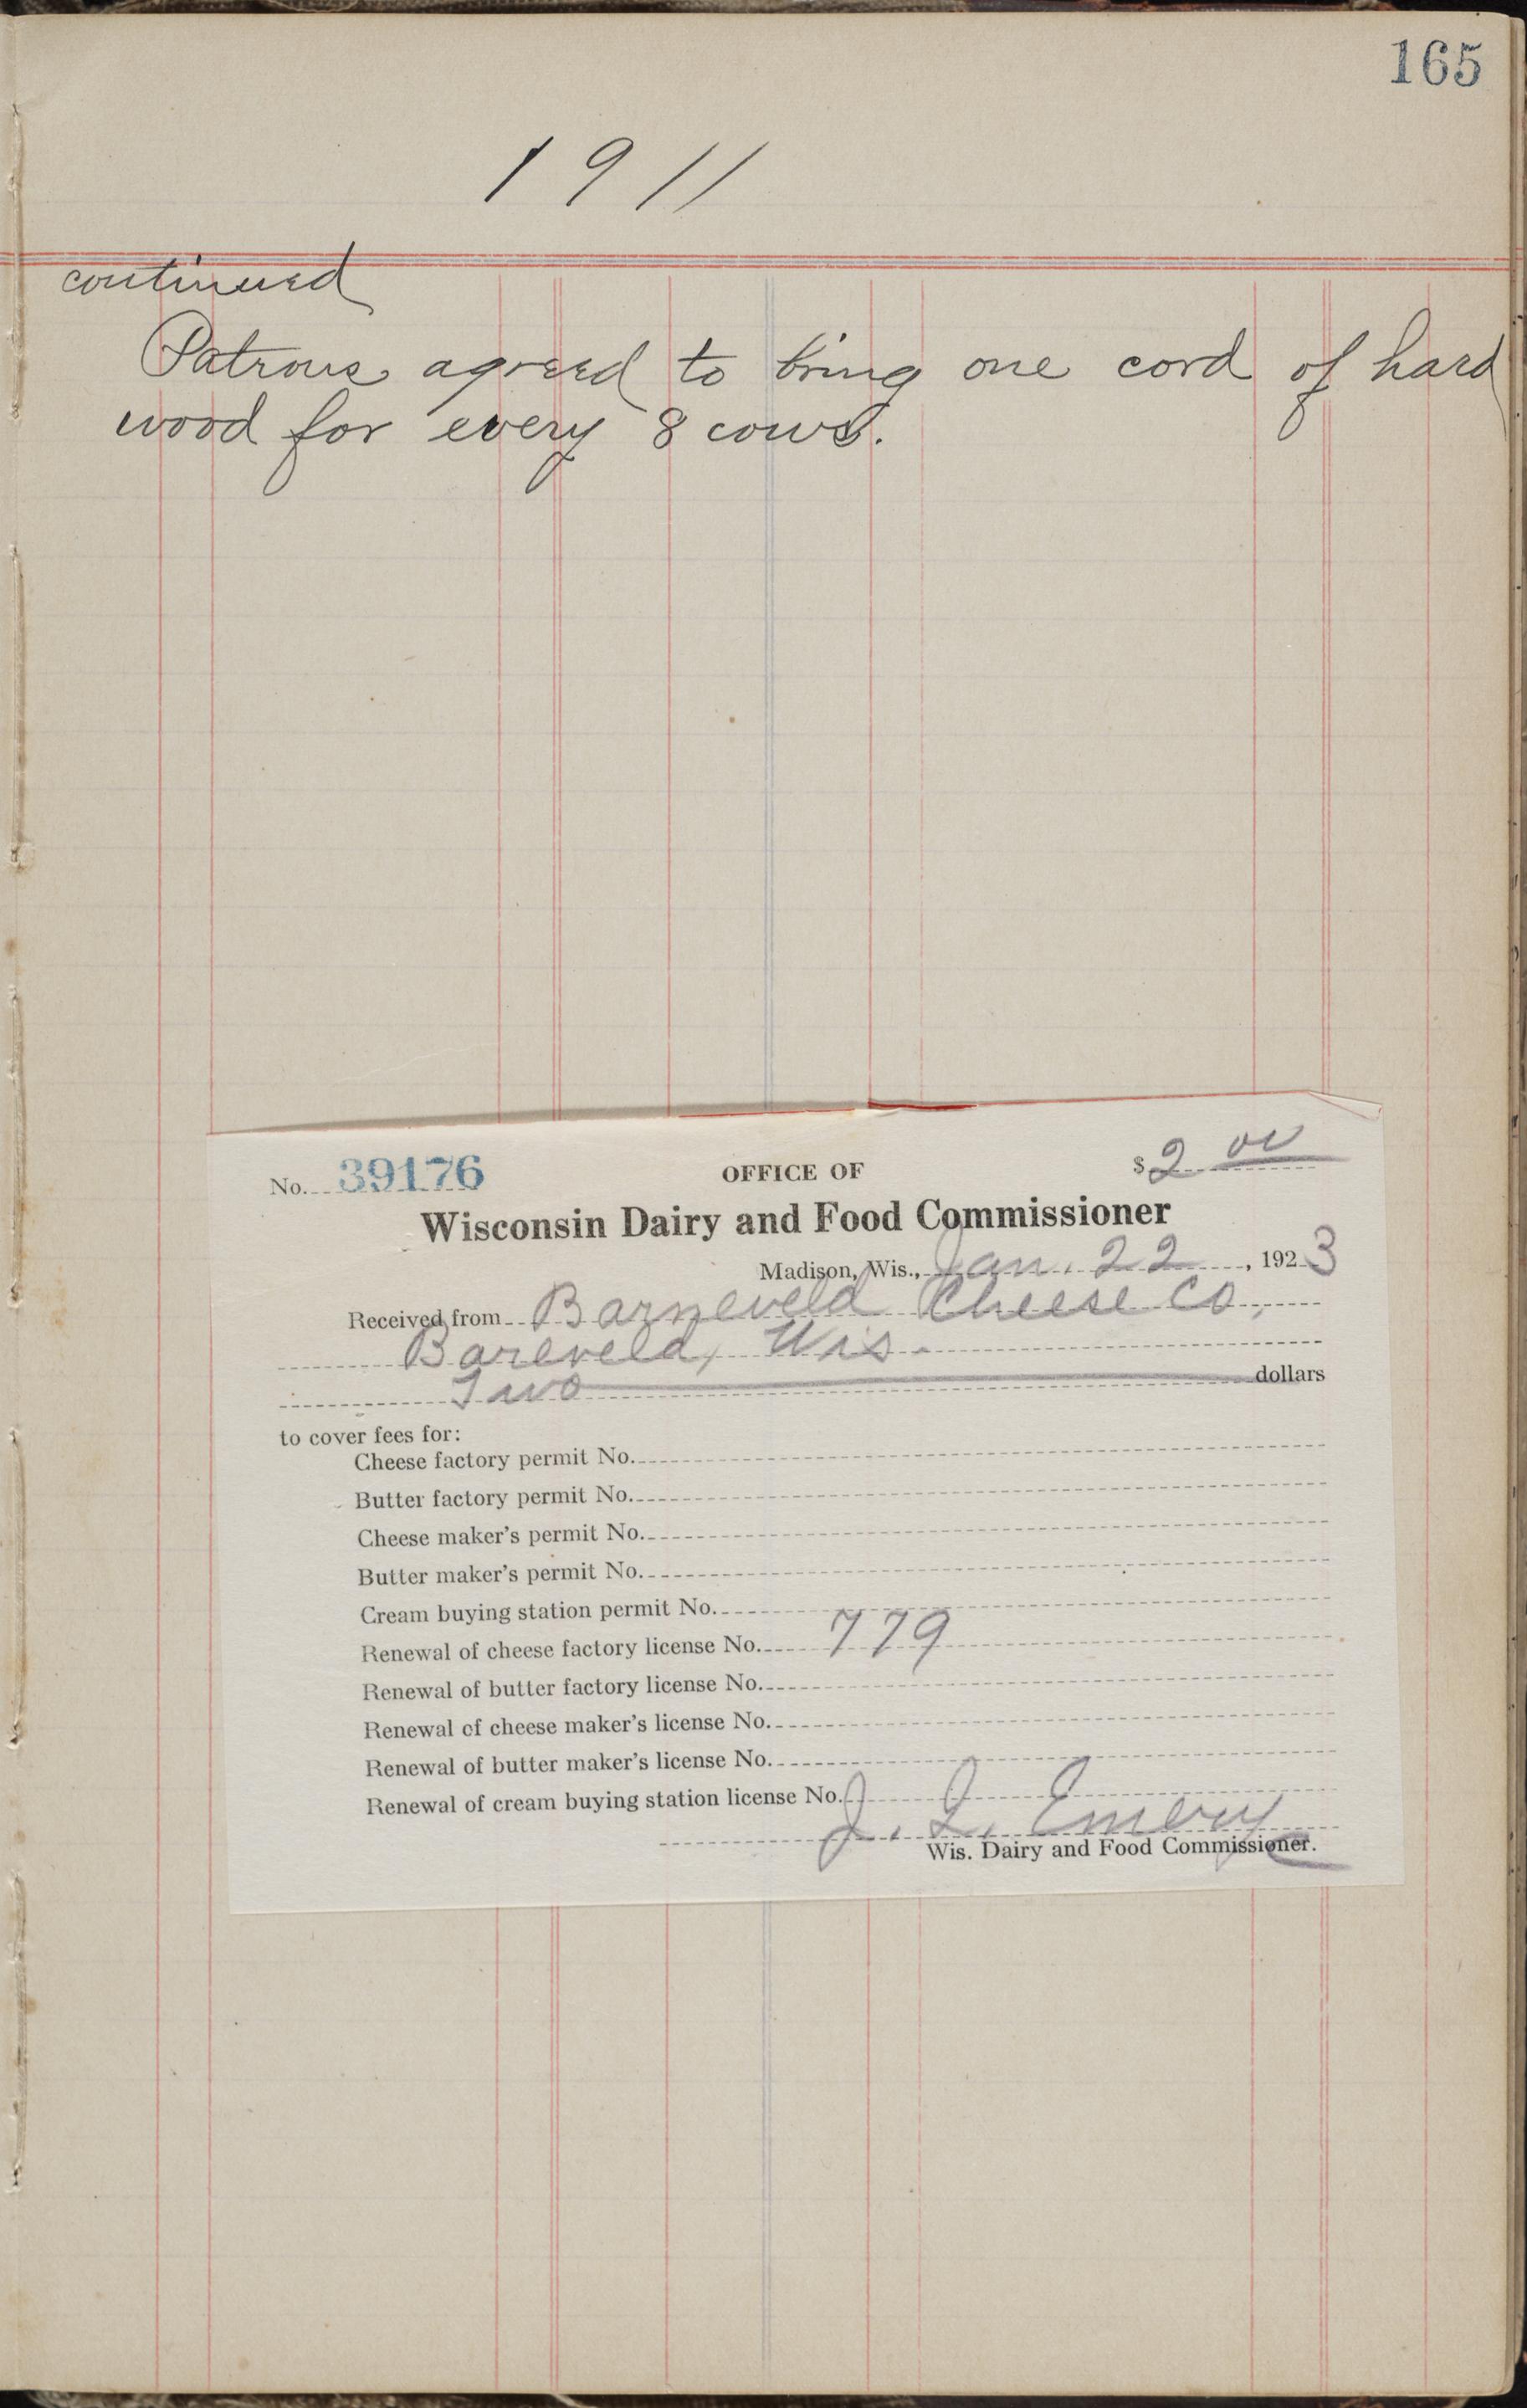 165
1911
continued
Patrons agreed to bring one cord of hard
wood for every 8 cows.
No. 39176
OFFICE OF
$2 00
Wisconsin Dairy and Food Commissioner
Madison, Wis., Jan. 22, 1923
Received from Barneveld Cheese Co.,
Bareveld, Wis.
Two dollars
to cover fees for:
Cheese factory permit No.
Butter factory permit No.
Cheese maker's permit No.
Butter maker's permit No.
Cream buying station permit No.
Renewal of cheese factory license No. 779
Renewal of butter factory license No.
Renewal of cheese maker's license No.
Renewal of butter maker's license No.
Renewal of cream buying station license No.
J. Q. Emery
Wis. Dairy and Food Commissioner.